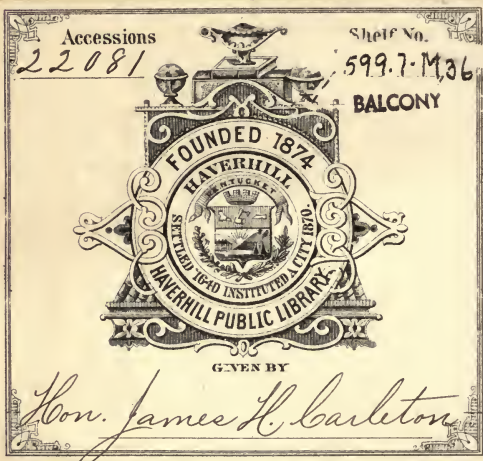 Accessions
22081
Shelf No.
599.7-M36
BALCONY
FOUNDED 1874
HAVERHILL
PENTUCKET
SETTLED 1640 INSTITUTED A CITY 1870.
HAVERHILL PUBLIC LIBRARY.
GIVEN BY
Hon. James H. Carleton